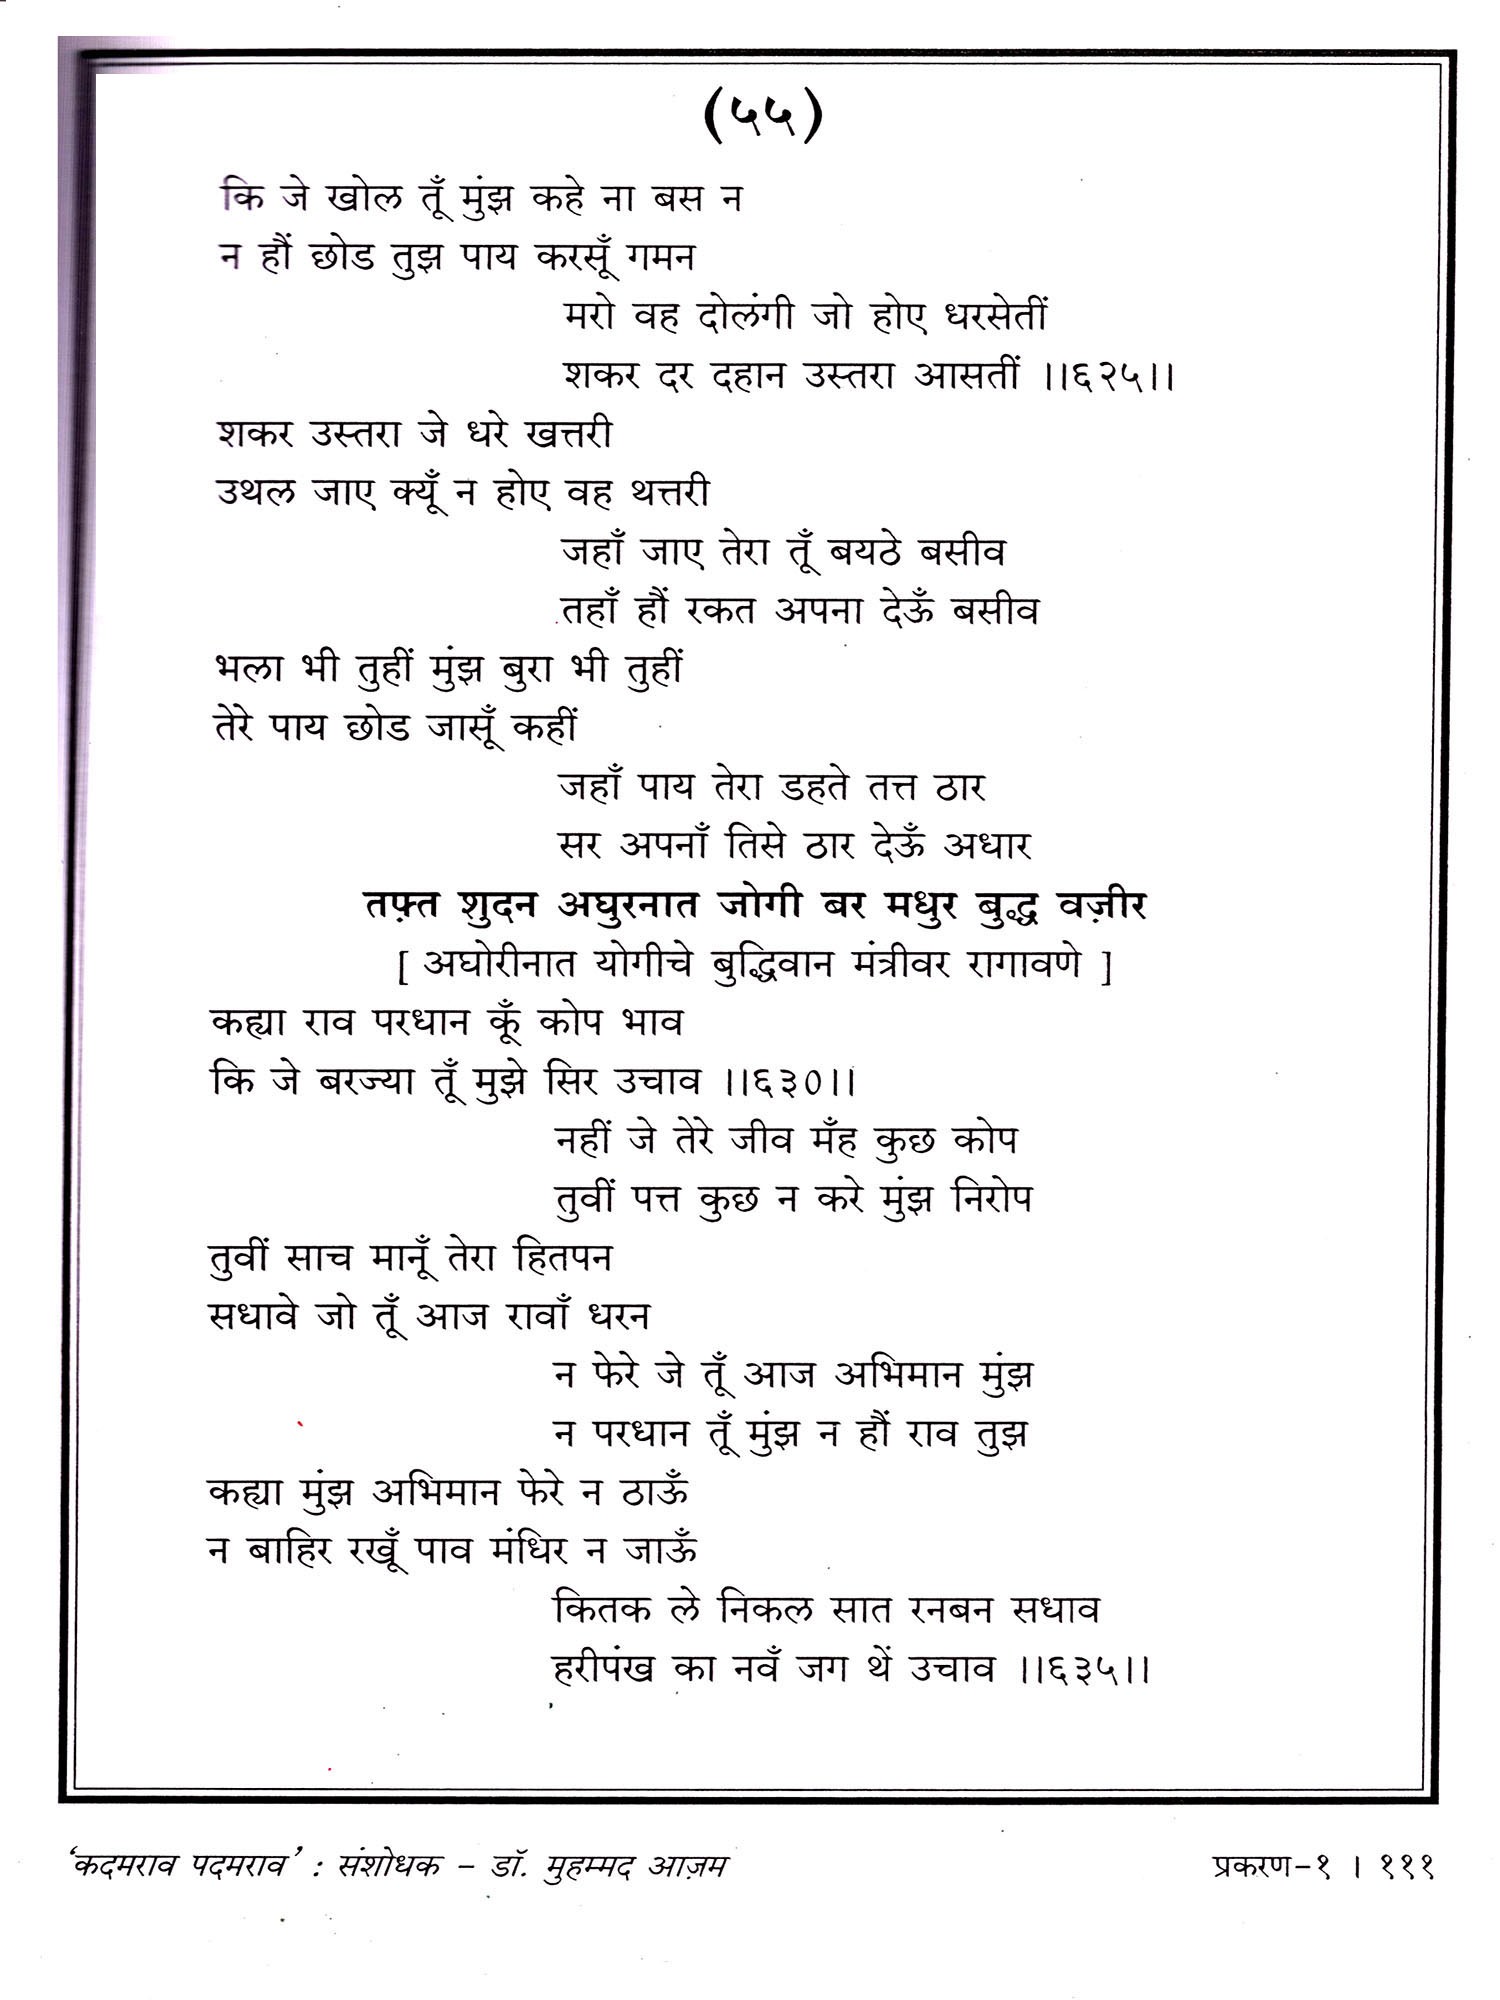 (५५)
कि जे खोल तूँ मुंझ कहे ना बस न
न हौं छोड तुझ पाय करसूँ गमन
मरो वह दोलंगी जो होए धरसेतीं
शकर दर दहान उस्तरा आसतीं ।।६२५।।
शकर उस्तरा जे धरे खत्तरी
उथल जाए क्यूँ न होए वह थत्तरी
जहाँ जाए तेरा तूँ बयठे बसीव
तहाँ हौं रकत अपना देऊँ बसीव
भला भी तुहीं मुंझ बुरा भी तुहीं
तेरे पाय छोड जासूँ कहीं
जहाँ पाय तेरा डहते तत्त ठार
सर अपनाँ तिसे ठार देऊँ अधार
तफ़्त शुदन अघुरनात जोगी बर मधुर बुद्ध वज़ीर
[ अघोरीनात योगीचे बुद्धिवान मंत्रीवर रागावणे ]
कह्या राव परधान कूँ कोप भाव
कि जे बरज्या तूँ मुझे सिर उचाव ।।६३०।।
नहीं जे तेरे जीव मँह कुछ कोप
तुवीं पत्त कुछ न करे मुंझ निरोप
तुवीं साच मानूँ तेरा हितपन
सधावे जो तूँ आज रावाँ धरन
न फेरे जे तूँ आज अभिमान मुंझ
न परधान तूँ मुंझ न हौं राव तुझ
कह्या मुंझ अभिमान फेरे न ठाऊँ
न बाहिर रखूँ पाव मंधिर न जाऊँ
कितक ले निकल सात रनबन सधाव
हरीपंख का नवँ जग थें उचाव ।।६३५।।
‘कदमराव पदमराव’ : संशोधक – डॉ. मुहम्मद आज़म
प्रकरण–१ । १११